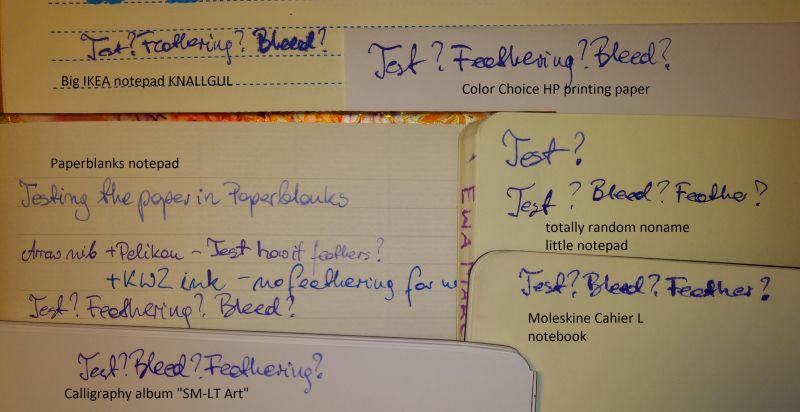 Test? Feathering? Bleed?
Big IKEA notepad KNALLGUL
Test? Feethering? Bleed?
Color Choice HP printing paper
Paperblanks notepad
Testing the paper in Paperblanks
Arrow nib + Pelikan - Test how it feathers?
+ KWZ ink - no feathering for
Test? Feethering? Bleed?
Test?
Test? Bleed? Feather?
totally random noname
little notepad
EWA
Test? Bleed? Feather?
Moleskine Cahier L
notebook
Test? Bleed? Feathering?
Calligraphy album "SM-LT Art"